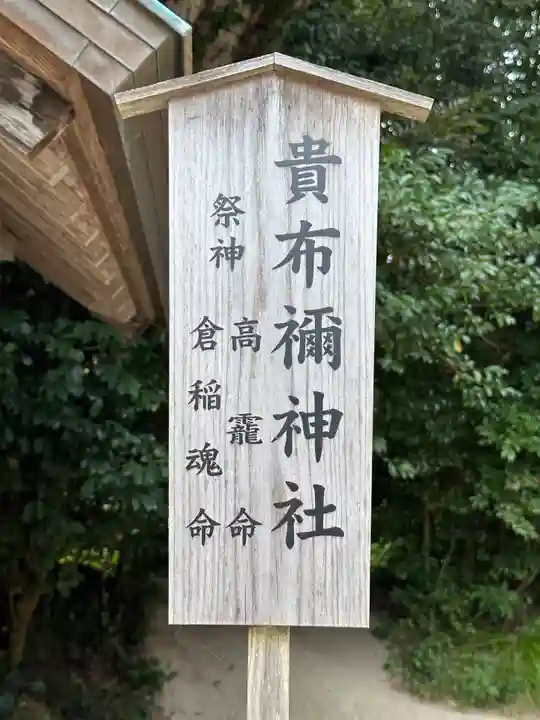 貴布禰神社
祭神
高龗命
倉稲魂命